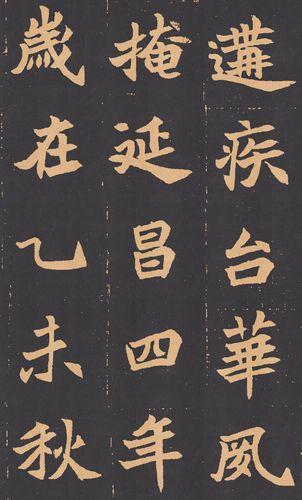 遘疾台華夙
掩延昌四年
歲在乙未秋